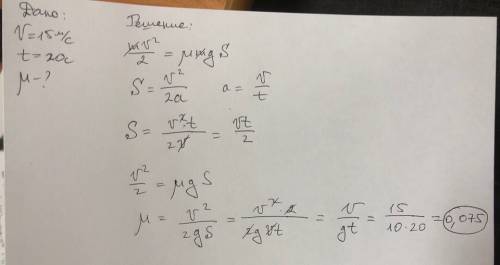 Дано:
V=15 м/с
t = 20с
μ-?
Решение:
mv²/2 = μmgS
S = v²/2a    a = v/t
S = v²·t/2v = vt/2
v²/2 = μgS
μ = v²/2gS = v²·2/2gvt = v/gt = 15/10·20 = 0,075